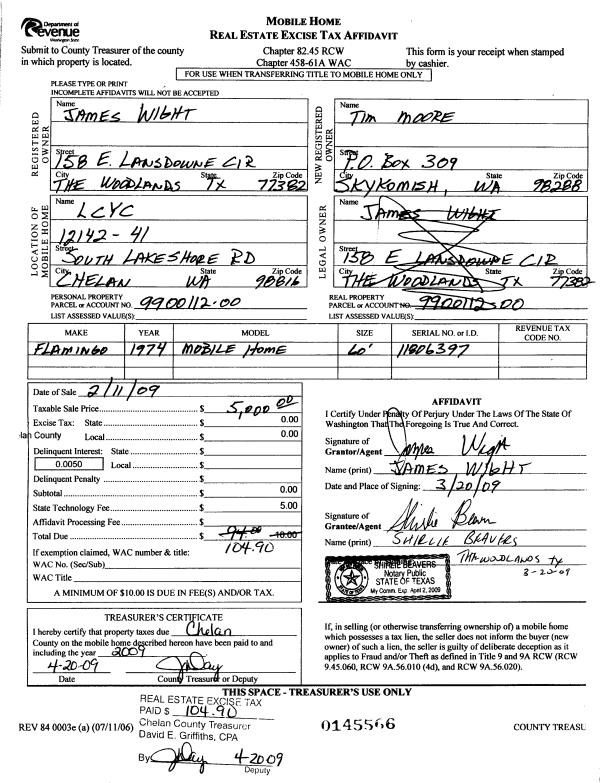 Department of
Revenue
Washington State
MOBILE HOME
REAL ESTATE EXCISE TAX AFFIDAVIT
Submit to County Treasurer of the county
in which property is located.
Chapter 82.45 RCW
Chapter 458-61A WAC
This form is your receipt when stamped
by cashier.
FOR USE WHEN TRANSFERRING TITLE TO MOBILE HOME ONLY
PLEASE TYPE OR PRINT
INCOMPLETE AFFIDAVITS WILL NOT BE ACCEPTED
REGISTERED OWNER
Name
JAMES WIGHT
Street
158 E. LANSDOWNE CIR
City State Zip Code
THE WOODLANDS TX 77382
NEW REGISTERED OWNER
Name
TIM MOORE
Street
P.O. BOX 309
City State Zip Code
SKYKOMISH, WA 98288
LOCATION OF MOBILE HOME
Name
LCYC
12142 - 41
Street
SOUTH LAKESHORE RD
City State Zip Code
CHELAN WA 98816
LEGAL OWNER
Name
JAMES WIGHT
Street
158 E LANSDOWNE CIR
City State Zip Code
THE WOODLANDS TX 77382
PERSONAL PROPERTY
PARCEL or ACCOUNT NO. 9900112.00
LIST ASSESSED VALUE(S):
REAL PROPERTY
PARCEL or ACCOUNT NO. 9900112.00
LIST ASSESSED VALUE(S):
MAKE YEAR MODEL SIZE SERIAL NO. or I.D. REVENUE TAX CODE NO.
FLAMINGO 1974 MOBILE HOME 60' 11806397
Date of Sale 2/11/09
Taxable Sale Price $ 5,000 00
Excise Tax: State $ 0.00
lan County Local $ 0.00
Delinquent Interest: State $
0.0050 Local $
Delinquent Penalty $
Subtotal $ 0.00
State Technology Fee $ 5.00
Affidavit Processing Fee $
Total Due $ 94.00 10.00
104.90
If exemption claimed, WAC number & title:
WAC No. (Sec/Sub)
WAC Title
A MINIMUM OF $10.00 IS DUE IN FEE(S) AND/OR TAX.
AFFIDAVIT
I Certify Under Penalty Of Perjury Under The Laws Of The State Of
Washington That The Foregoing Is True And Correct.
Signature of
Grantor/Agent James Wight
Name (print) JAMES WIGHT
Date and Place of Signing: 3/20/09
Signature of
Grantee/Agent Shirlie Beavers
Name (print) SHIRLIE BEAVERS
Date and Place of Signing: THE WOODLANDS TX
3-20-09
SHIRLIE BEAVERS
Notary Public
STATE OF TEXAS
My Comm. Exp. April 2, 2009
TREASURER'S CERTIFICATE
I hereby certify that property taxes due Chelan
County on the mobile home described hereon have been paid to and
including the year 2009
4-20-09 JDay
Date County Treasurer or Deputy
If, in selling (or otherwise transferring ownership of) a mobile home
which possesses a tax lien, the seller does not inform the buyer (new
owner) of such a lien, the seller is guilty of deliberate deception as it
applies to Fraud and/or Theft as defined in Title 9 and 9A RCW (RCW
9.45.060, RCW 9A.56.010 (4d), and RCW 9A.56.020).
THIS SPACE - TREASURER'S USE ONLY
REAL ESTATE EXCISE TAX
PAID $ 104.90
Chelan County Treasurer
David E. Griffiths, CPA
By JDay 4-2009
Deputy
REV 84 0003e (a) (07/11/06)
0145566
COUNTY TREASU